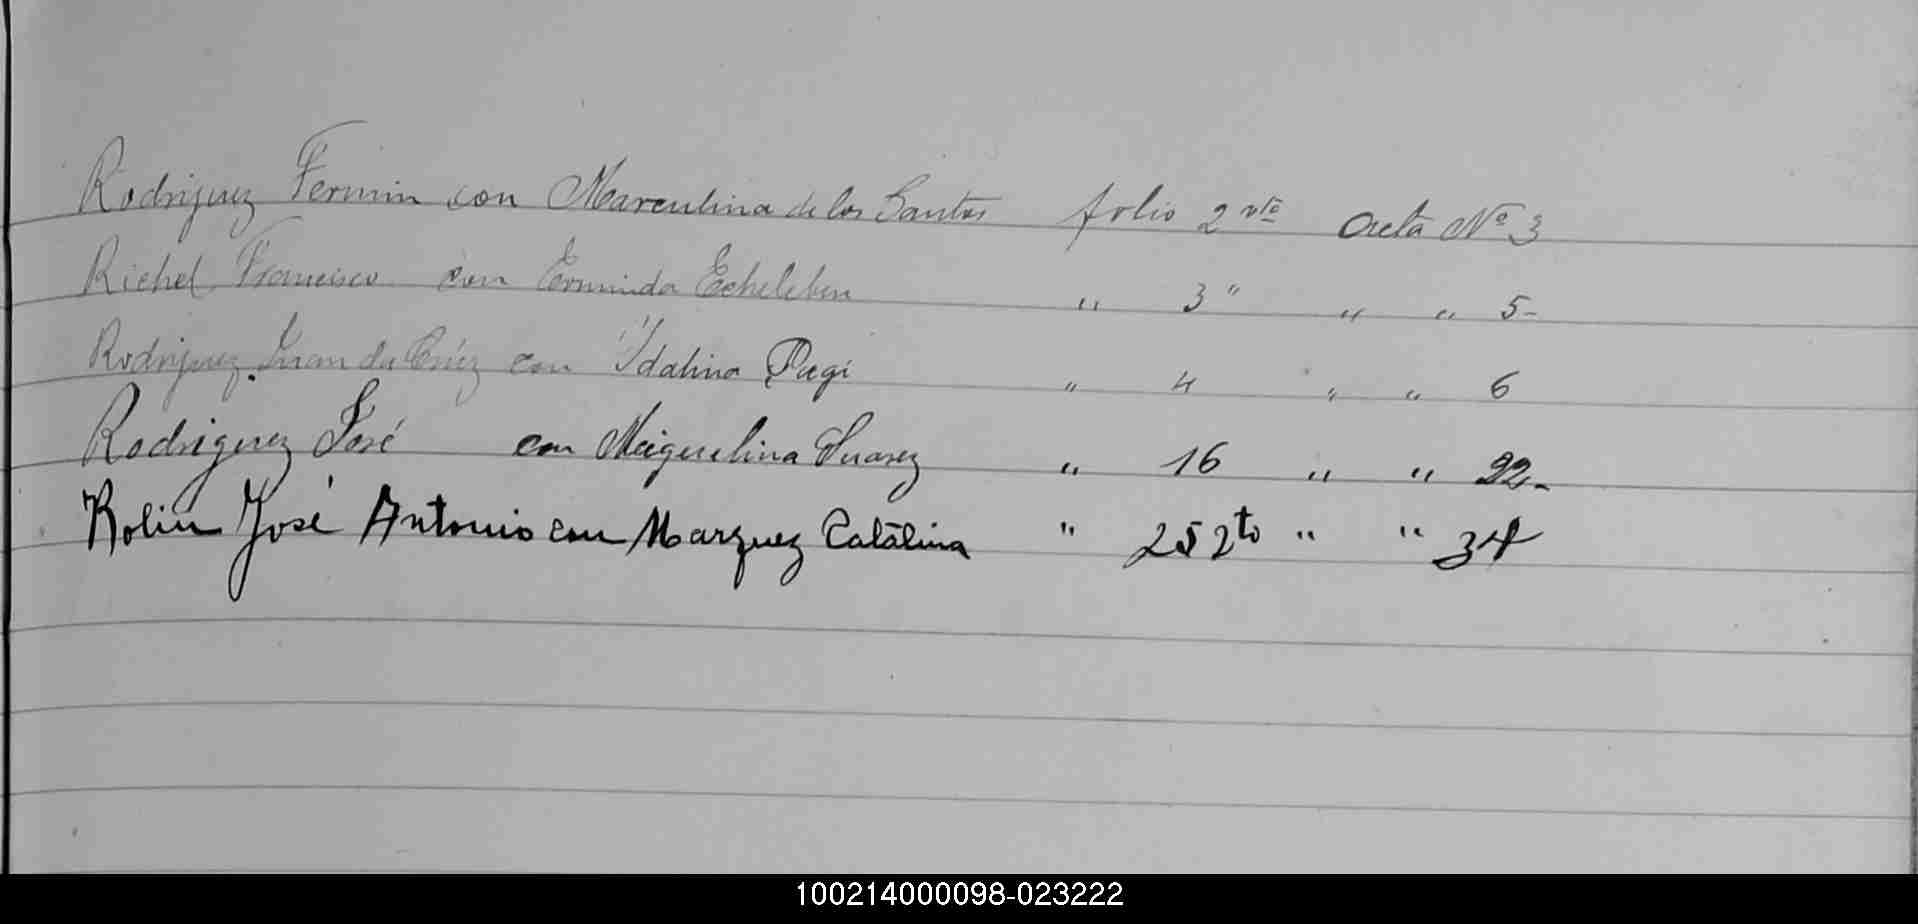 Rodriguez Fermin con Marculina de los Santos folio 2 vto Acta Nº 3
Richel Francisco con Erminda " 3 " " " 5-
Rodriguez Juan da Crúz con Idalina Pugi " 4 " " 6
Rodriguez José con Miguelina Suarez " 16 " " 22-
Rolin José Antonio con Marquez Catalina " 25 2to " " 34
100214000098-023222